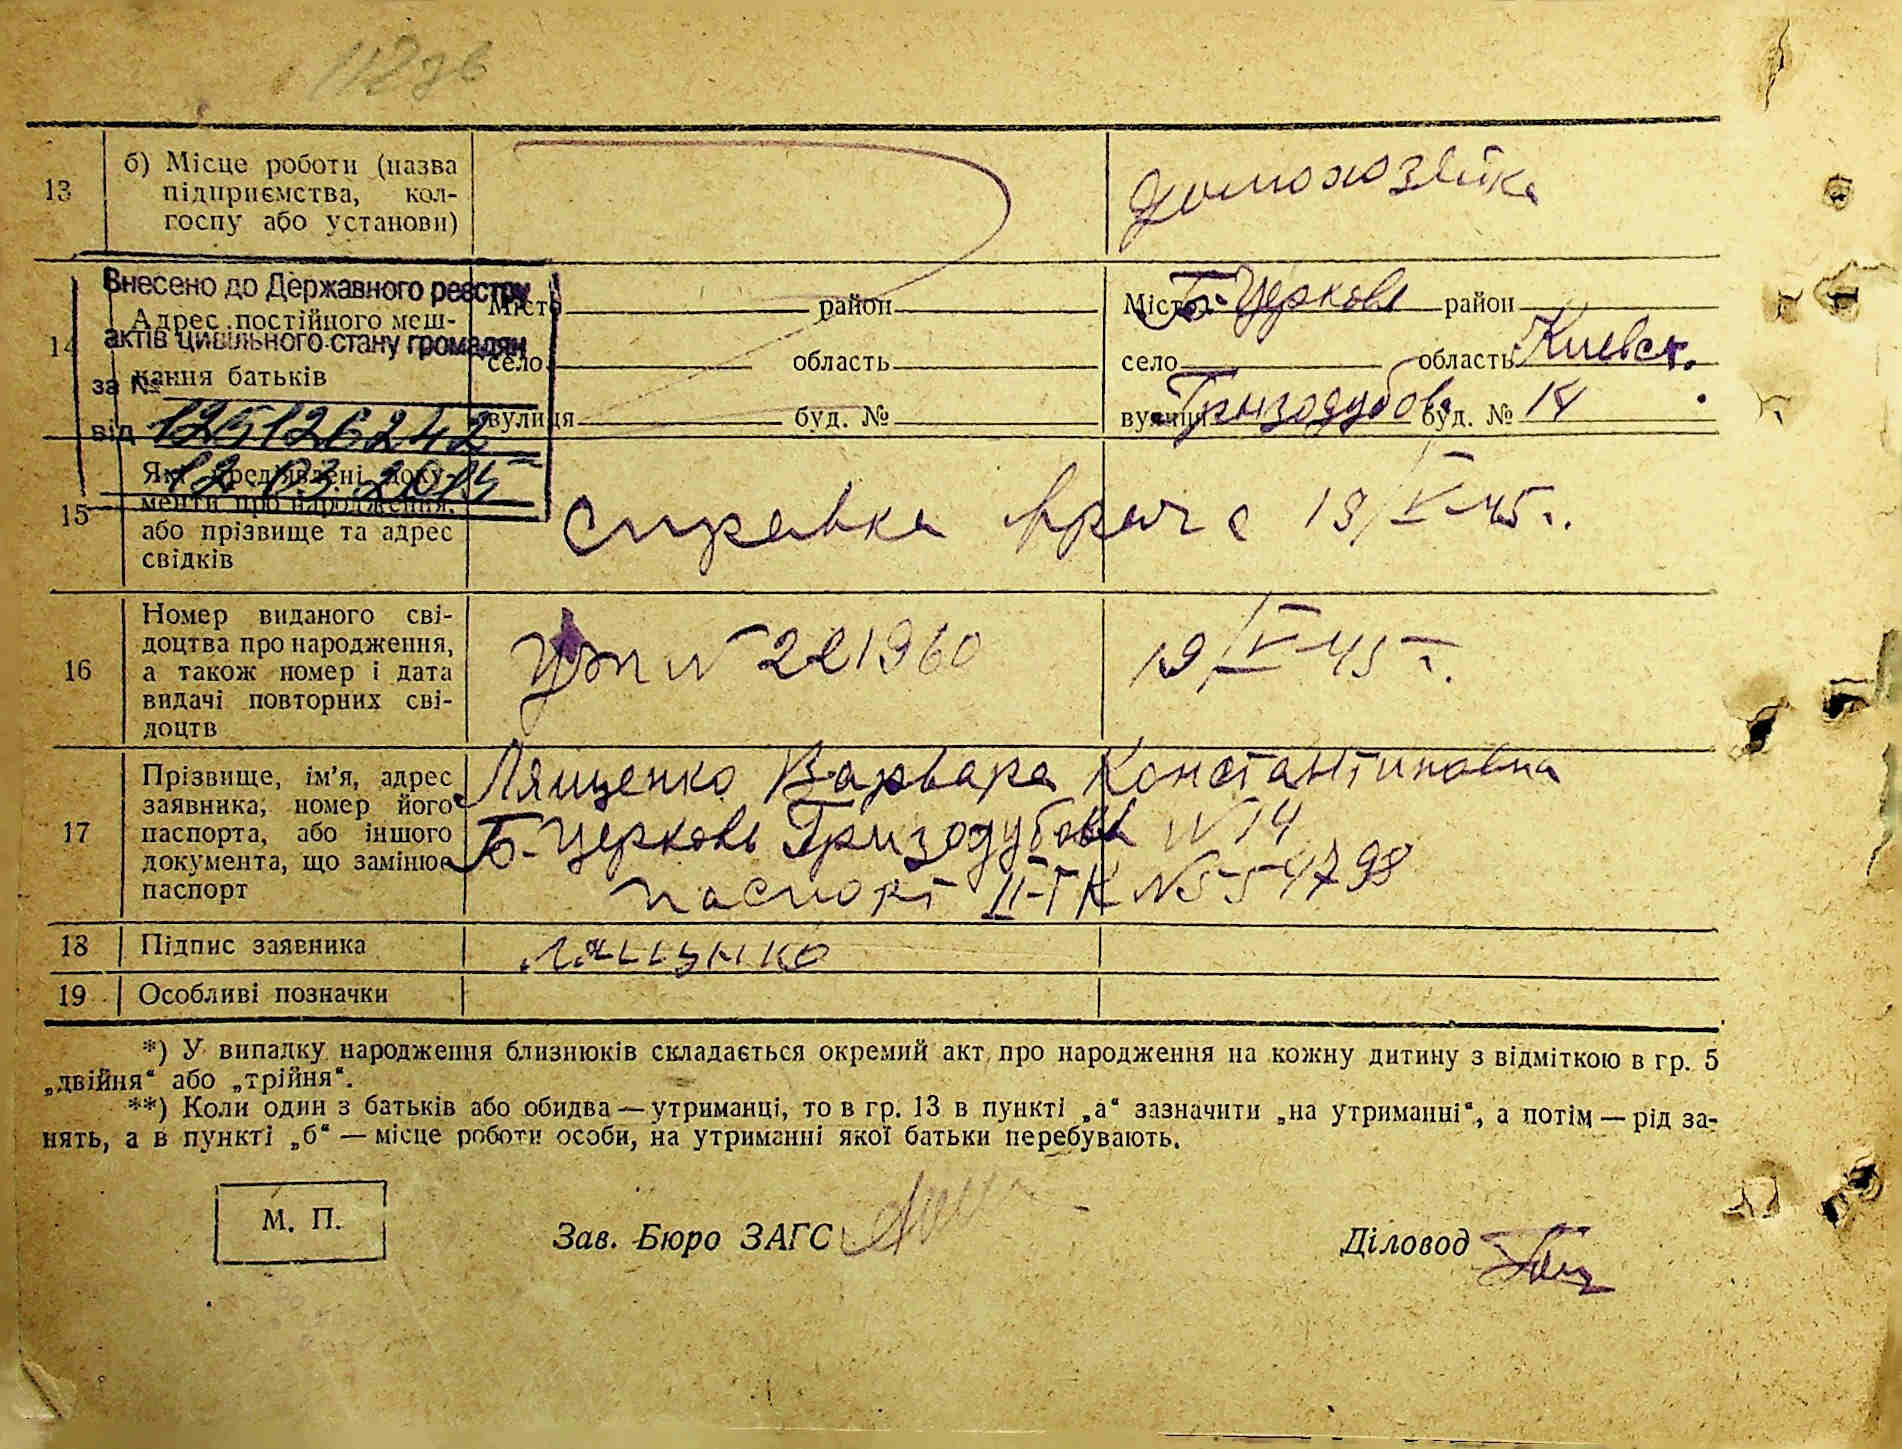 13
б) Місце роботи (назва
підприємства, кол-
госпу або установи)
домохозяйка
Внесено до Державного реєстру
актів цивільного стану громадян
за № 125126242
від 12 03 2015
14
Адрес постійного меш-
кання батьків
Місто район
село область
вулиця буд. №
Місто Б-Церковь район
село область Киевск.
вулиця Гризодубова буд. № 14
15
Які пред'явлені доку-
менти про народження,
або прізвище та адрес
свідків
справка врача 19/V-45г.
16
Номер виданого сві-
доцтва про народження,
а також номер і дата
видачі повторних сві-
доцтв
N 221960 19/V-45г.
17
Прізвище, ім'я, адрес
заявника, номер його
паспорта, або іншого
документа, що замінює
паспорт
Лященко Варвара Константиновна
Б-Церковь Гризодубова N 14
паспорт II-ГК N 554798
18 Підпис заявника
19 Особливі позначки
*) У випадку народження близнюків складається окремий акт про народження на кожну дитину з відміткою в гр. 5
„двійня“ або „трійня“.
**) Коли один з батьків або обидва — утриманці, то в гр. 13 в пункті „а“ зазначити „на утриманні“, а потім — рід за-
нять, а в пункті „б“ — місце роботи особи, на утриманні якої батьки перебувають.
М. П.
Зав. Бюро ЗАГС
Діловод